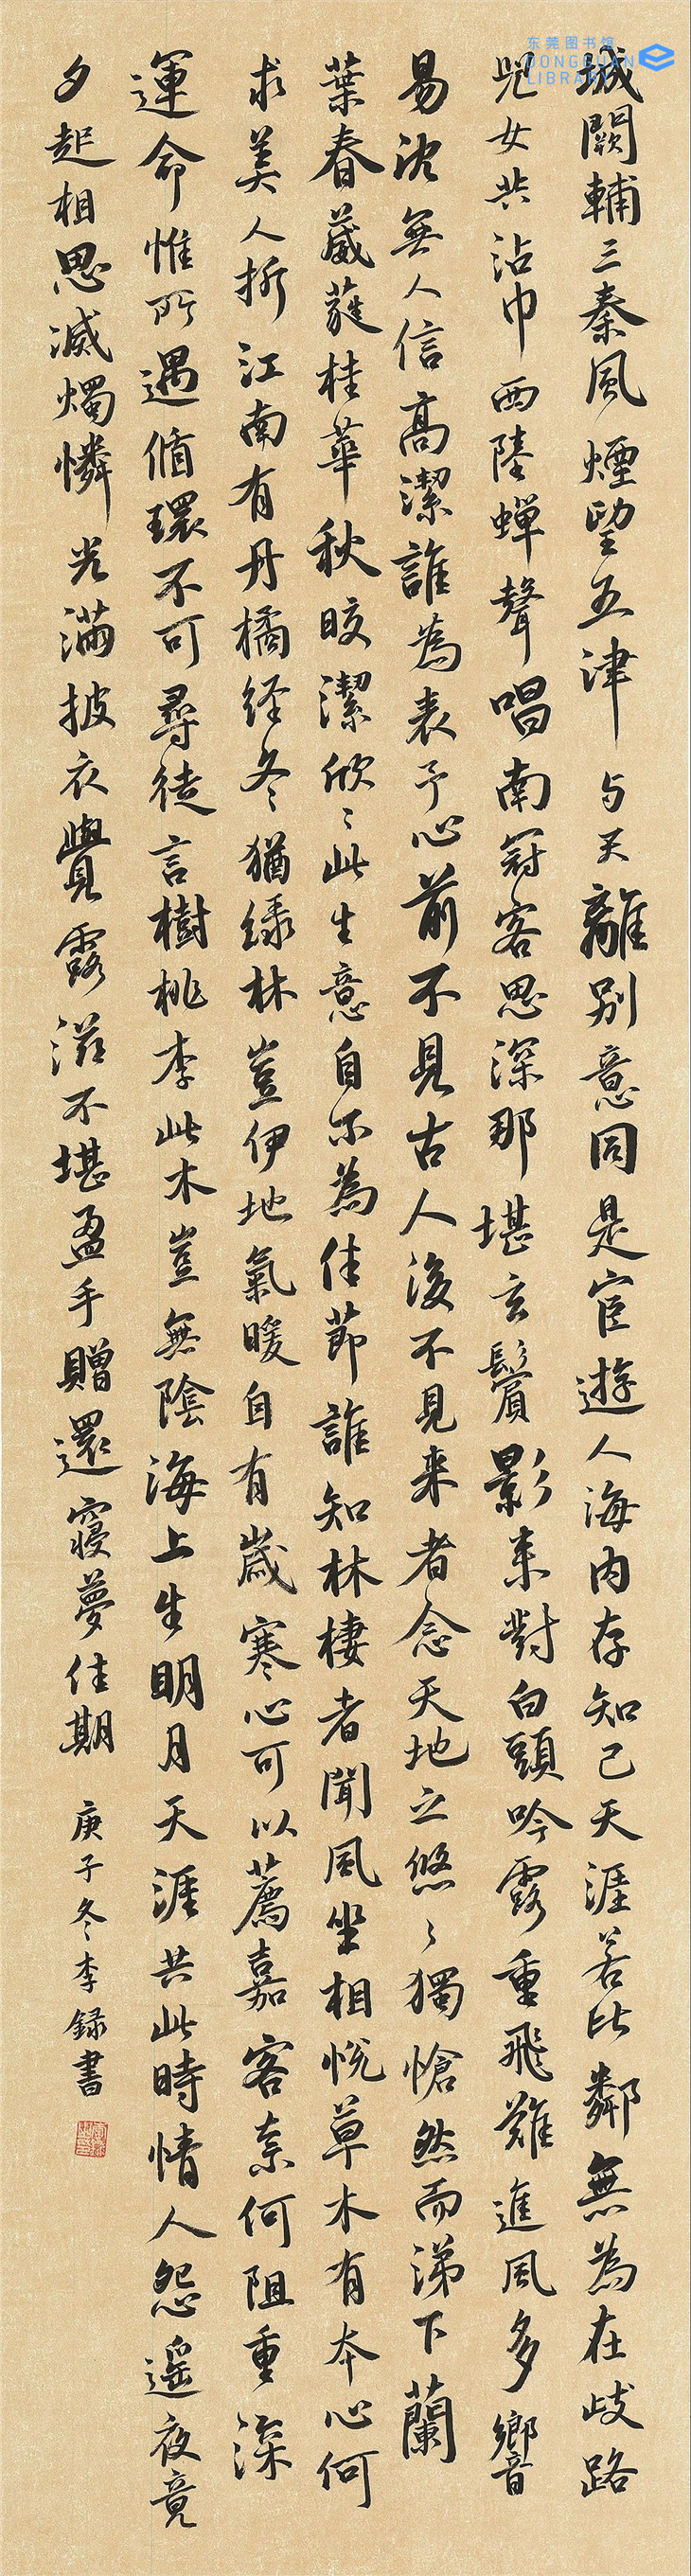 东莞图书馆
DONGGUAN
LIBRARY
城闕輔三秦風煙望五津与君離別意同是宦遊人海内存知己天涯若比鄰無為在歧路
兒女共沾巾西陸蟬聲唱南冠客思深那堪玄鬢影来對白頭吟露重飛難進風多響
易沈無人信高潔誰為表予心前不見古人後不見来者念天地之悠〻獨愴然而涕下蘭
葉春葳蕤桂華秋皎潔欣〻此生意自尔為佳節誰知林棲者聞風坐相悦草木有本心何
求美人折江南有丹橘經冬猶緑林豈伊地氣暖自有歲寒心可以薦嘉客奈何阻重深
運命惟所遇循環不可尋徒言樹桃李此木豈無陰海上生明月天涯共此時情人怨遥夜竟
夕起相思滅燭憐光滿披衣覺露滋不堪盈手贈還寢夢佳期 庚子冬李録書